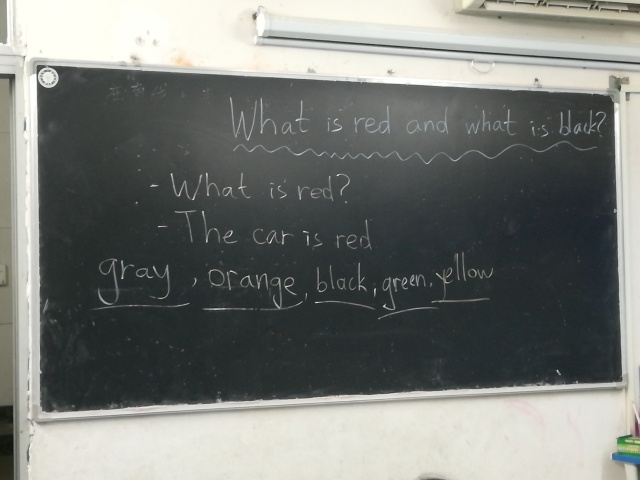 What is red and what is black?
- What is red?
- The car is red
gray, orange, black, green, yellow